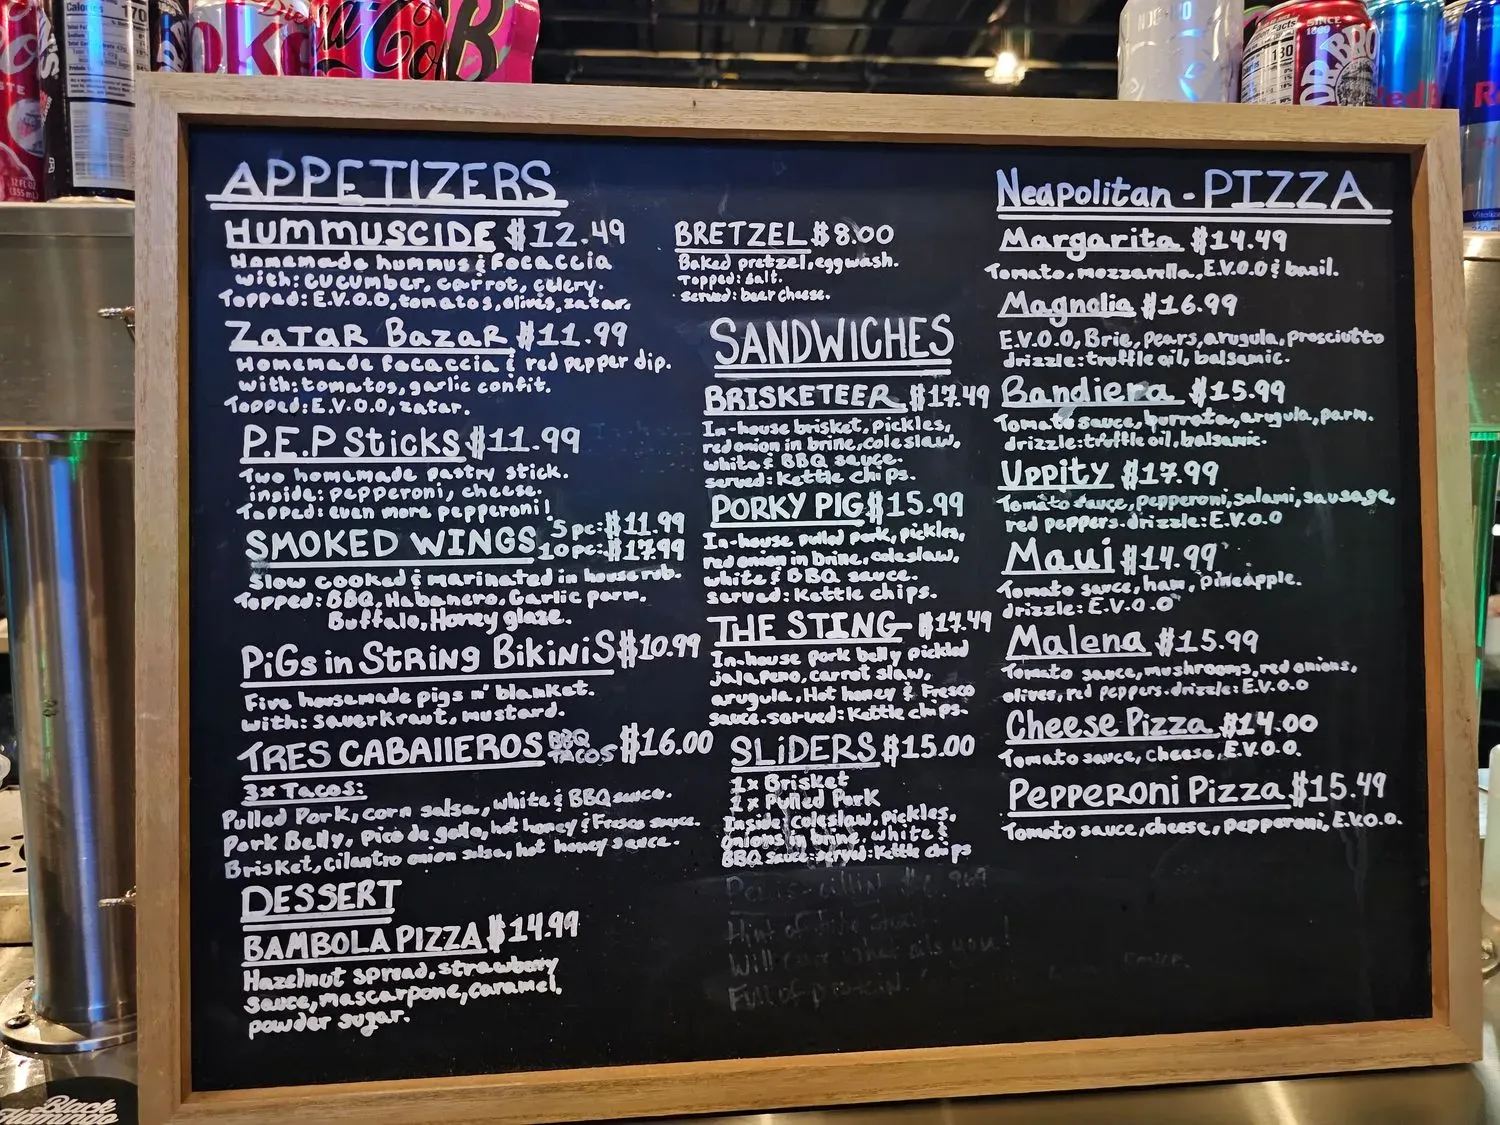 APPETIZERS
HUMMUSCIDE $12.49
Homemade hummus & Focaccia
with: cucumber, carrot, celery.
Topped: E.V.O.O, tomatos, olives, zatar.
ZATAR BAZAR $11.99
Homemade focaccia & red pepper dip.
with: tomatos, garlic confit.
Topped: E.V.O.O, zatar.
P.E.P Sticks $11.99
Two homemade pastry stick.
inside: pepperoni, cheese.
Topped: even more pepperoni!
SMOKED WINGS 5 pc: $11.99
10 pc: $17.99
Slow cooked & marinated in house rub.
Topped: BBQ, Habanero, Garlic parm.
Buffalo, Honey glaze.
PiGs in STRING BikiniS $10.99
Five housemade pigs n' blanket.
with: sauerkraut, mustard.
TRES CABAllEROS BBQ TACOS $16.00
3x Tacos:
Pulled Pork, corn salsa, white & BBQ sauce.
Pork Belly, pico de gallo, hot honey & Fresco sauce.
Brisket, cilantro onion salsa, hot honey sauce.
DESSERT
BAMBOLA PIZZA $14.99
Hazelnut spread, strawberry
sauce, mascarpone, caramel,
powder sugar.
BRETZEL $8.00
Baked pretzel, egg wash.
Topped: Salt.
served: beer cheese.
SANDWICHES
BRISKETEER $17.49
In-house brisket, pickles,
red onion in brine, coleslaw,
white & BBQ sauce.
served: Kettle chips.
PORKY PIG $15.99
In-house pulled pork, pickles,
red onion in brine, coleslaw,
white & BBQ sauce.
served: Kettle chips.
THE STING $17.49
In-house pork belly pickled
jalapeno, carrot slaw,
arugula, Hot honey & Fresco
sauce. served: Kettle chips.
SLiDERS $15.00
1x Brisket
1x Pulled Pork
Inside: coleslaw, pickles,
onions in brine, white &
BBQ sauce. served: Kettle chips
Hint of
Will cure what ails you!
Full of
Neapolitan - PIZZA
Margarita $14.49
Tomato, mozzarella, E.V.O.O & basil.
Magnolia $16.99
E.V.O.O, Brie, pears, arugula, prosciutto
drizzle: truffle oil, balsamic.
Bandiera $15.99
Tomato sauce, burrata, arugula, parm.
drizzle: truffle oil, balsamic.
Uppity $17.99
Tomato sauce, pepperoni, salami, sausage,
red peppers. drizzle: E.V.O.O
Maui $14.99
Tomato sauce, ham, pineapple.
drizzle: E.V.O.O
Malena $15.99
Tomato sauce, mushrooms, red onions,
olives, red peppers. drizzle: E.V.O.O
Cheese Pizza $14.00
Tomato sauce, cheese, E.V.O.O.
Pepperoni Pizza $15.49
Tomato sauce, cheese, pepperoni, E.V.O.O.
Black
Flamingo